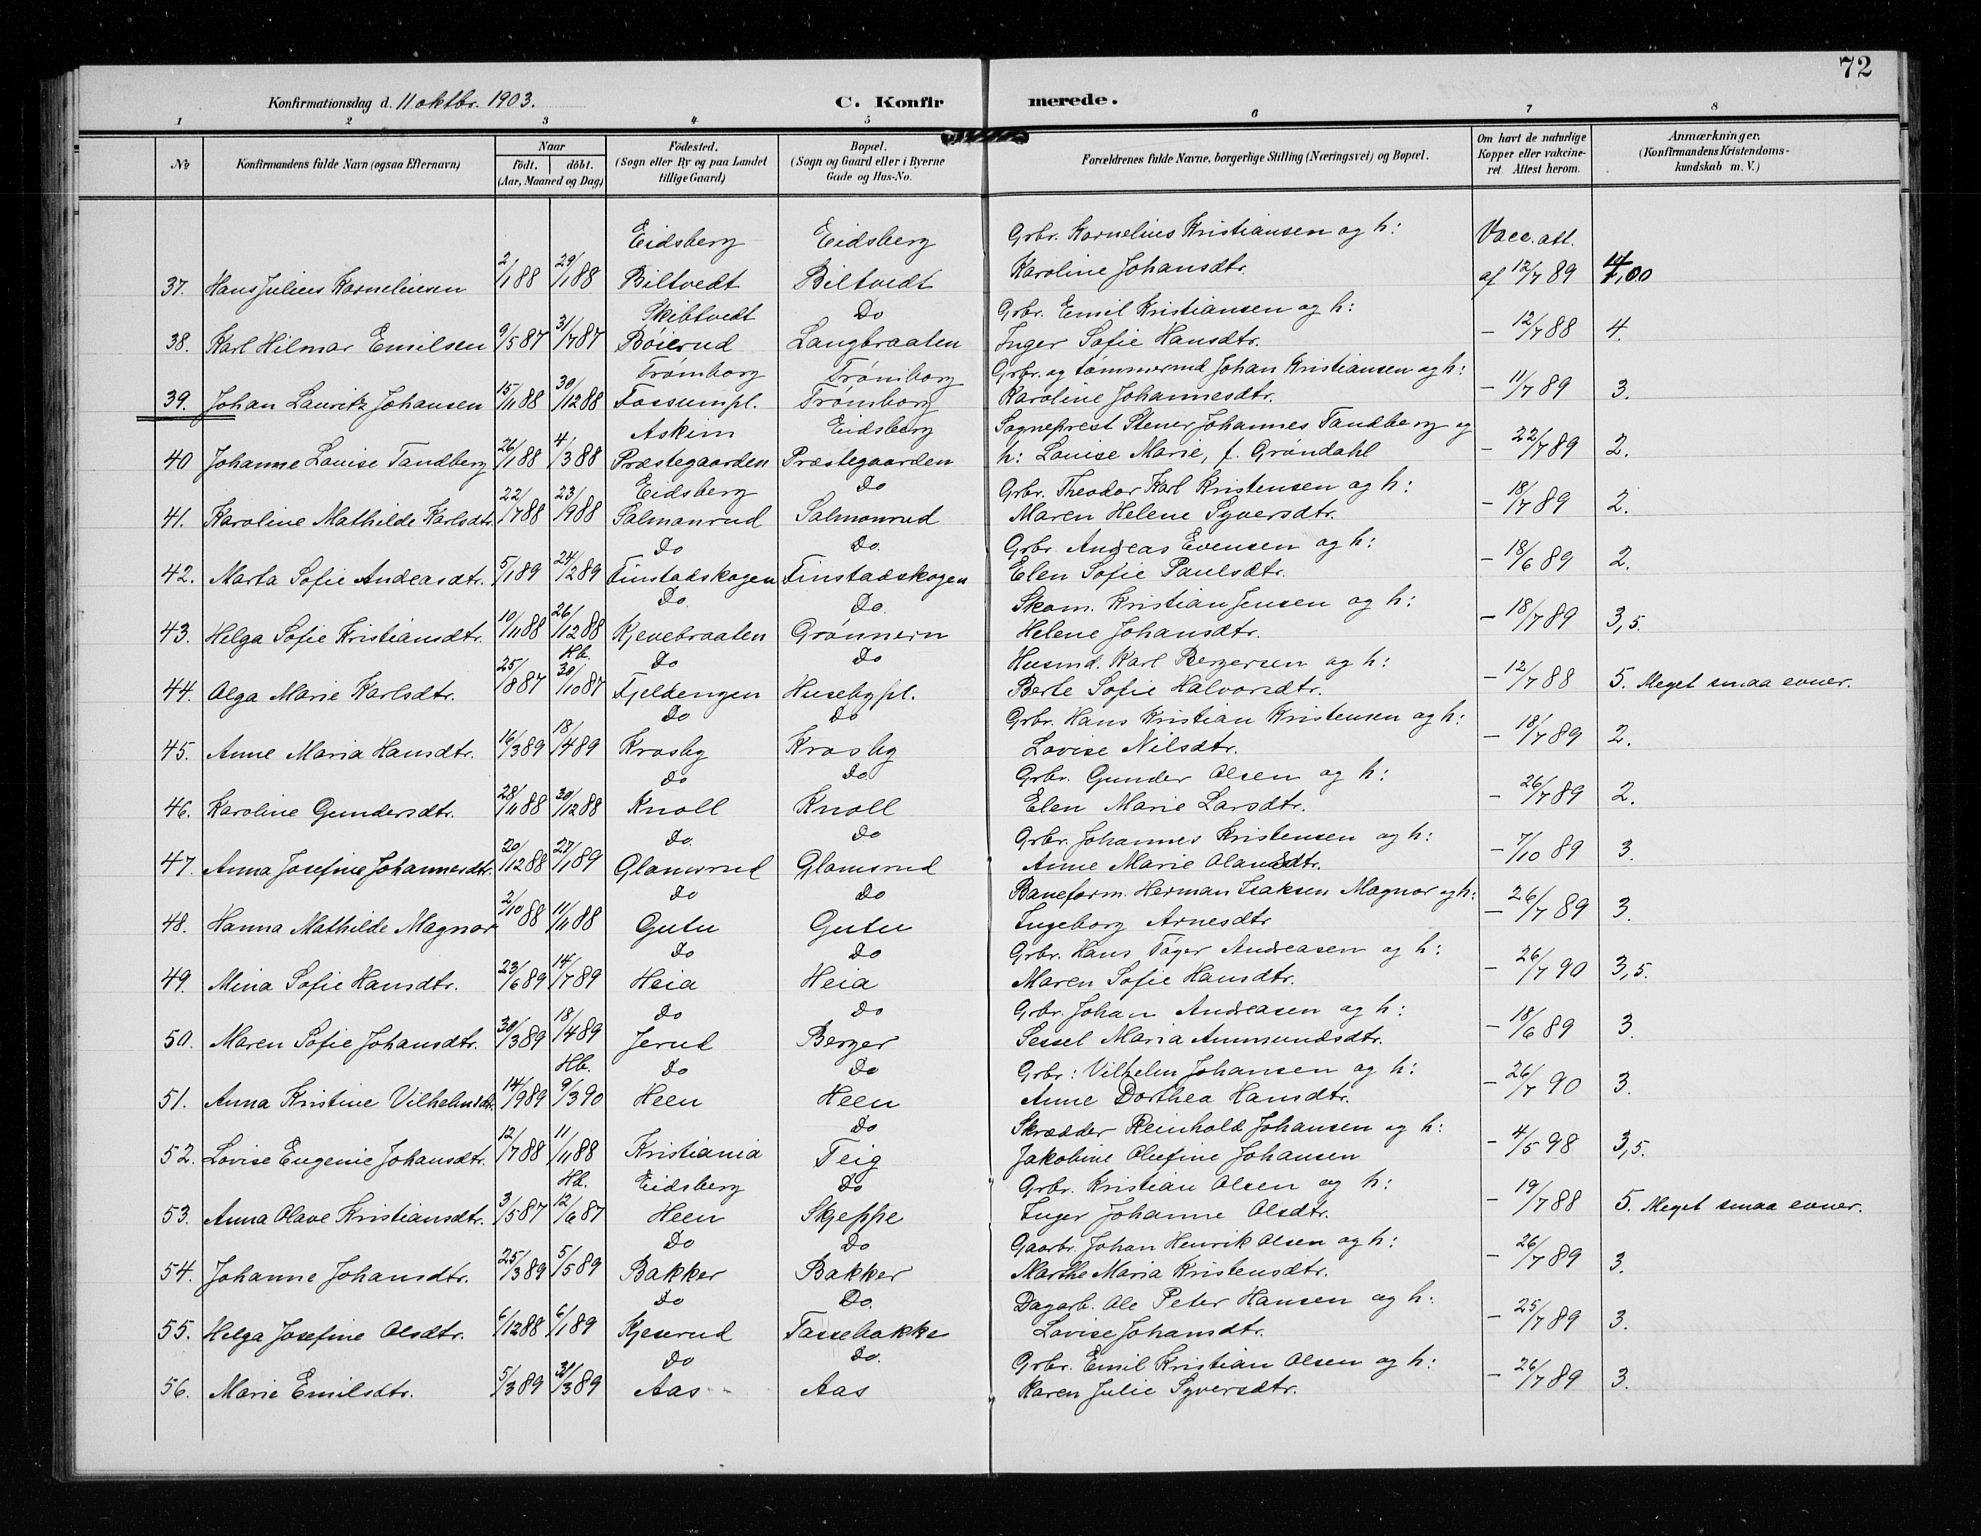 72
Konfirmationsdag d. 11 oktbr. 1903. C. Konfirmerede.
1 2 3 4 5 6 7 8
No Konfirmandens fulde Navn (ogsaa Efternavn) Naar født. døbt. (Aar, Maaned og Dag) Fødested. (Sogn eller By og paa Landet tillige Gaard) Bopæl. (Sogn og Gaard eller i Byerne Gade og Hus-No. Forældrenes fulde Navne, borgerlige Stilling (Næringsvei) og Bopæl. Om havt de naturlige Kopper eller vakcineret Attest herom. Anmærkninger. (Konfirmandens Kristendomskundskab m. V.)
Eidsberg Eidsberg Grbr. Kornelius Kristiansen og h: Vacc. att.
37. Hans Julius Korneliusen 2/1 88 29/1 88 Biltvedt Biltvedt Karoline Johansdtr. af 12/7 89
Skibtvedt Do Grbr. Emil Kristiansen og h:
38. Karl Hilmar Emilsen 9/5 87 31/7 87 Bøierud Langbraaten Inger Sofie Hansdtr. – 12/7 88 4.
Trømborg Trømborg Grbr. og tømmermd Johan Kristiansen og h:
39. Johan Lauritz Johansen 15/11 88 30/12 88 Fossumpl. Trømborg Karoline Johannesdtr. – 11/7 89 3.
Askim Eidsberg Sogneprest Stener Johannes Tandberg og
40 Johanne Louise Tandberg 26/1 88 4/3 88 Præstegaarden Præstegaarden h: Louise Marie, f. Grøndahl – 22/7 89 2.
Eidsberg Do Grbr. Theodor Karl Kristensen og h:
41. Karoline Mathilde Karlsdtr. 22/7 88 23/9 88 Salmonrud Salmonrud Maren Helene Syversdtr. – 18/7 89 2.
Do Do. Grbr Andreas Evensen og h:
42. Marta Sofie Andreasdtr. 5/1 89 24/2 89 Finstadskogen Finstadskogen Elen Sofie Paulsdtr. – 18/6 89 2.
Do. Do. Skom. Kristian Jensen og h:
43. Helga Sofie Kristiansdtr. 10/11 88 26/12 88 Kjevebraaten Grønnern Helene Johansdtr. – 18/7 89 3,5.
Hb. Do Do Husmd. Karl Bergersen og h:
44. Olga Marie Karlsdtr. 25/8 87 30/10 87 Fjeldengen Husebypl. Berte Sofie Halvorsdtr. – 12/7 88 5. Meget smaa evner.
Do Do Grbr. Hans Kristian Kristensen og h:
45. Anne Maria Hansdtr. 16/3 89 18/4 89 Krosby Krosby Lovise Nilsdtr. – 18/7 89 2.
Do Do Grbr. Gunder Olsen og h:
46. Karoline Gundersdtr. 28/11 88 30/12 88 Knoll Knoll Elen Marie Larsdtr. – 26/7 89 2.
Do. Do Grbr. Johannes Kristensen og h:
47. Anna Josefine Johannesdtr. 20/12 88 27/1 89 Glamsrud Glamsrud Anne Marie Olausdtr. – 7/10 89 3.
Do Do Baneform. Herman Isaksen Magnor og h:
48. Hanna Mathilde Magnor 2/10 88 11/11 88 Gutu Gutu Ingeborg Arnesdtr – 26/7 89 3.
Do Do Grbr. Hans Tøger Andreasen og h:
49. Mina Sofie Hansdtr. 23/6 89 14/7 89 Heia Heia Maren Sofie Hansdtr. – 26/7 90 3,5.
Do Do Grbr. Johan Andreasen og h:
50. Maren Sofie Johansdtr. 30/3 89 18/4 89 Jerud Berger Sessel Maria Ammundsdtr. – 18/6 89 3.
Hb. Do Do Grbr: Vilhelm Johansen og h:
51. Anna Kristine Vilhelmsdtr. 14/9 89 9/3 90 Heen Heen Anne Dorthea Hansdtr. – 26/7 90 3.
Do Skrædder Reinhold Johansen og h:
52. Lovise Eugenie Johansdtr. 12/7 88 11/11 88 Kristiania Teig Jakobine Oliefine Johansen – 4/5 98 3,5.
Hb. Eidsberg Do Grbr. Kristian Olsen og h:
53. Anna Olave Kristiansdtr. 3/5 87 12/6 87 Heen Skjeppe Inger Johanne Olsdtr. – 19/7 88 5. Meget smaa evner.
Do Do Gaarbr. Johan Henrik Olsen og h:
54. Johanne Johansdtr. 25/3 89 5/5 89 Bakker Bakker Marthe Maria Kristensdtr. – 26/7 89 3.
Do Do. Dagarb. Ole Peter Hansen og h:
55. Helga Josefine Olsdtr. 6/12 88 6/1 89 Kjeserud Tassebakke Lovise Johansdtr. – 25/7 89 3.
Do Do. Grbr. Emil Kristian Olsen og h:
56. Marie Emilsdtr. 5/3 89 31/3 89 Aas Aas Karen Julie Syversdtr. – 26/7 89 3.